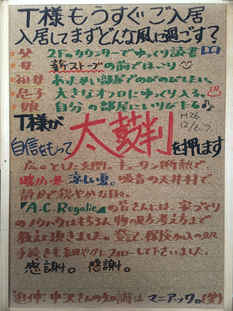 T様もうすぐご入居
入居してまずどんな風に過ごす？
父 2Fのカウンターでゆっくり読書
母 薪ストーブの前でほっこり
祖母 あたたかい部屋でのびのびしたい。
息子 大きなオフロにゆっくり入る。
娘 自分の部屋にいりびたる
T様が
自信をもって 太鼓判を押します
H26
12/6.7
広々とした玄関。
暖か冬 涼しい夏。吸音の天井材で
静かで穏やかな日々。
「A.C.Regalie」の皆さんには、家づくり
のノウハウはもちろん物の見方考え方まで
教えて頂きました。登記、保険など
手続きも細やかにフォローして下さいました。
感謝。感謝。
追伸：中沢さんの知識はマニアック。(笑)